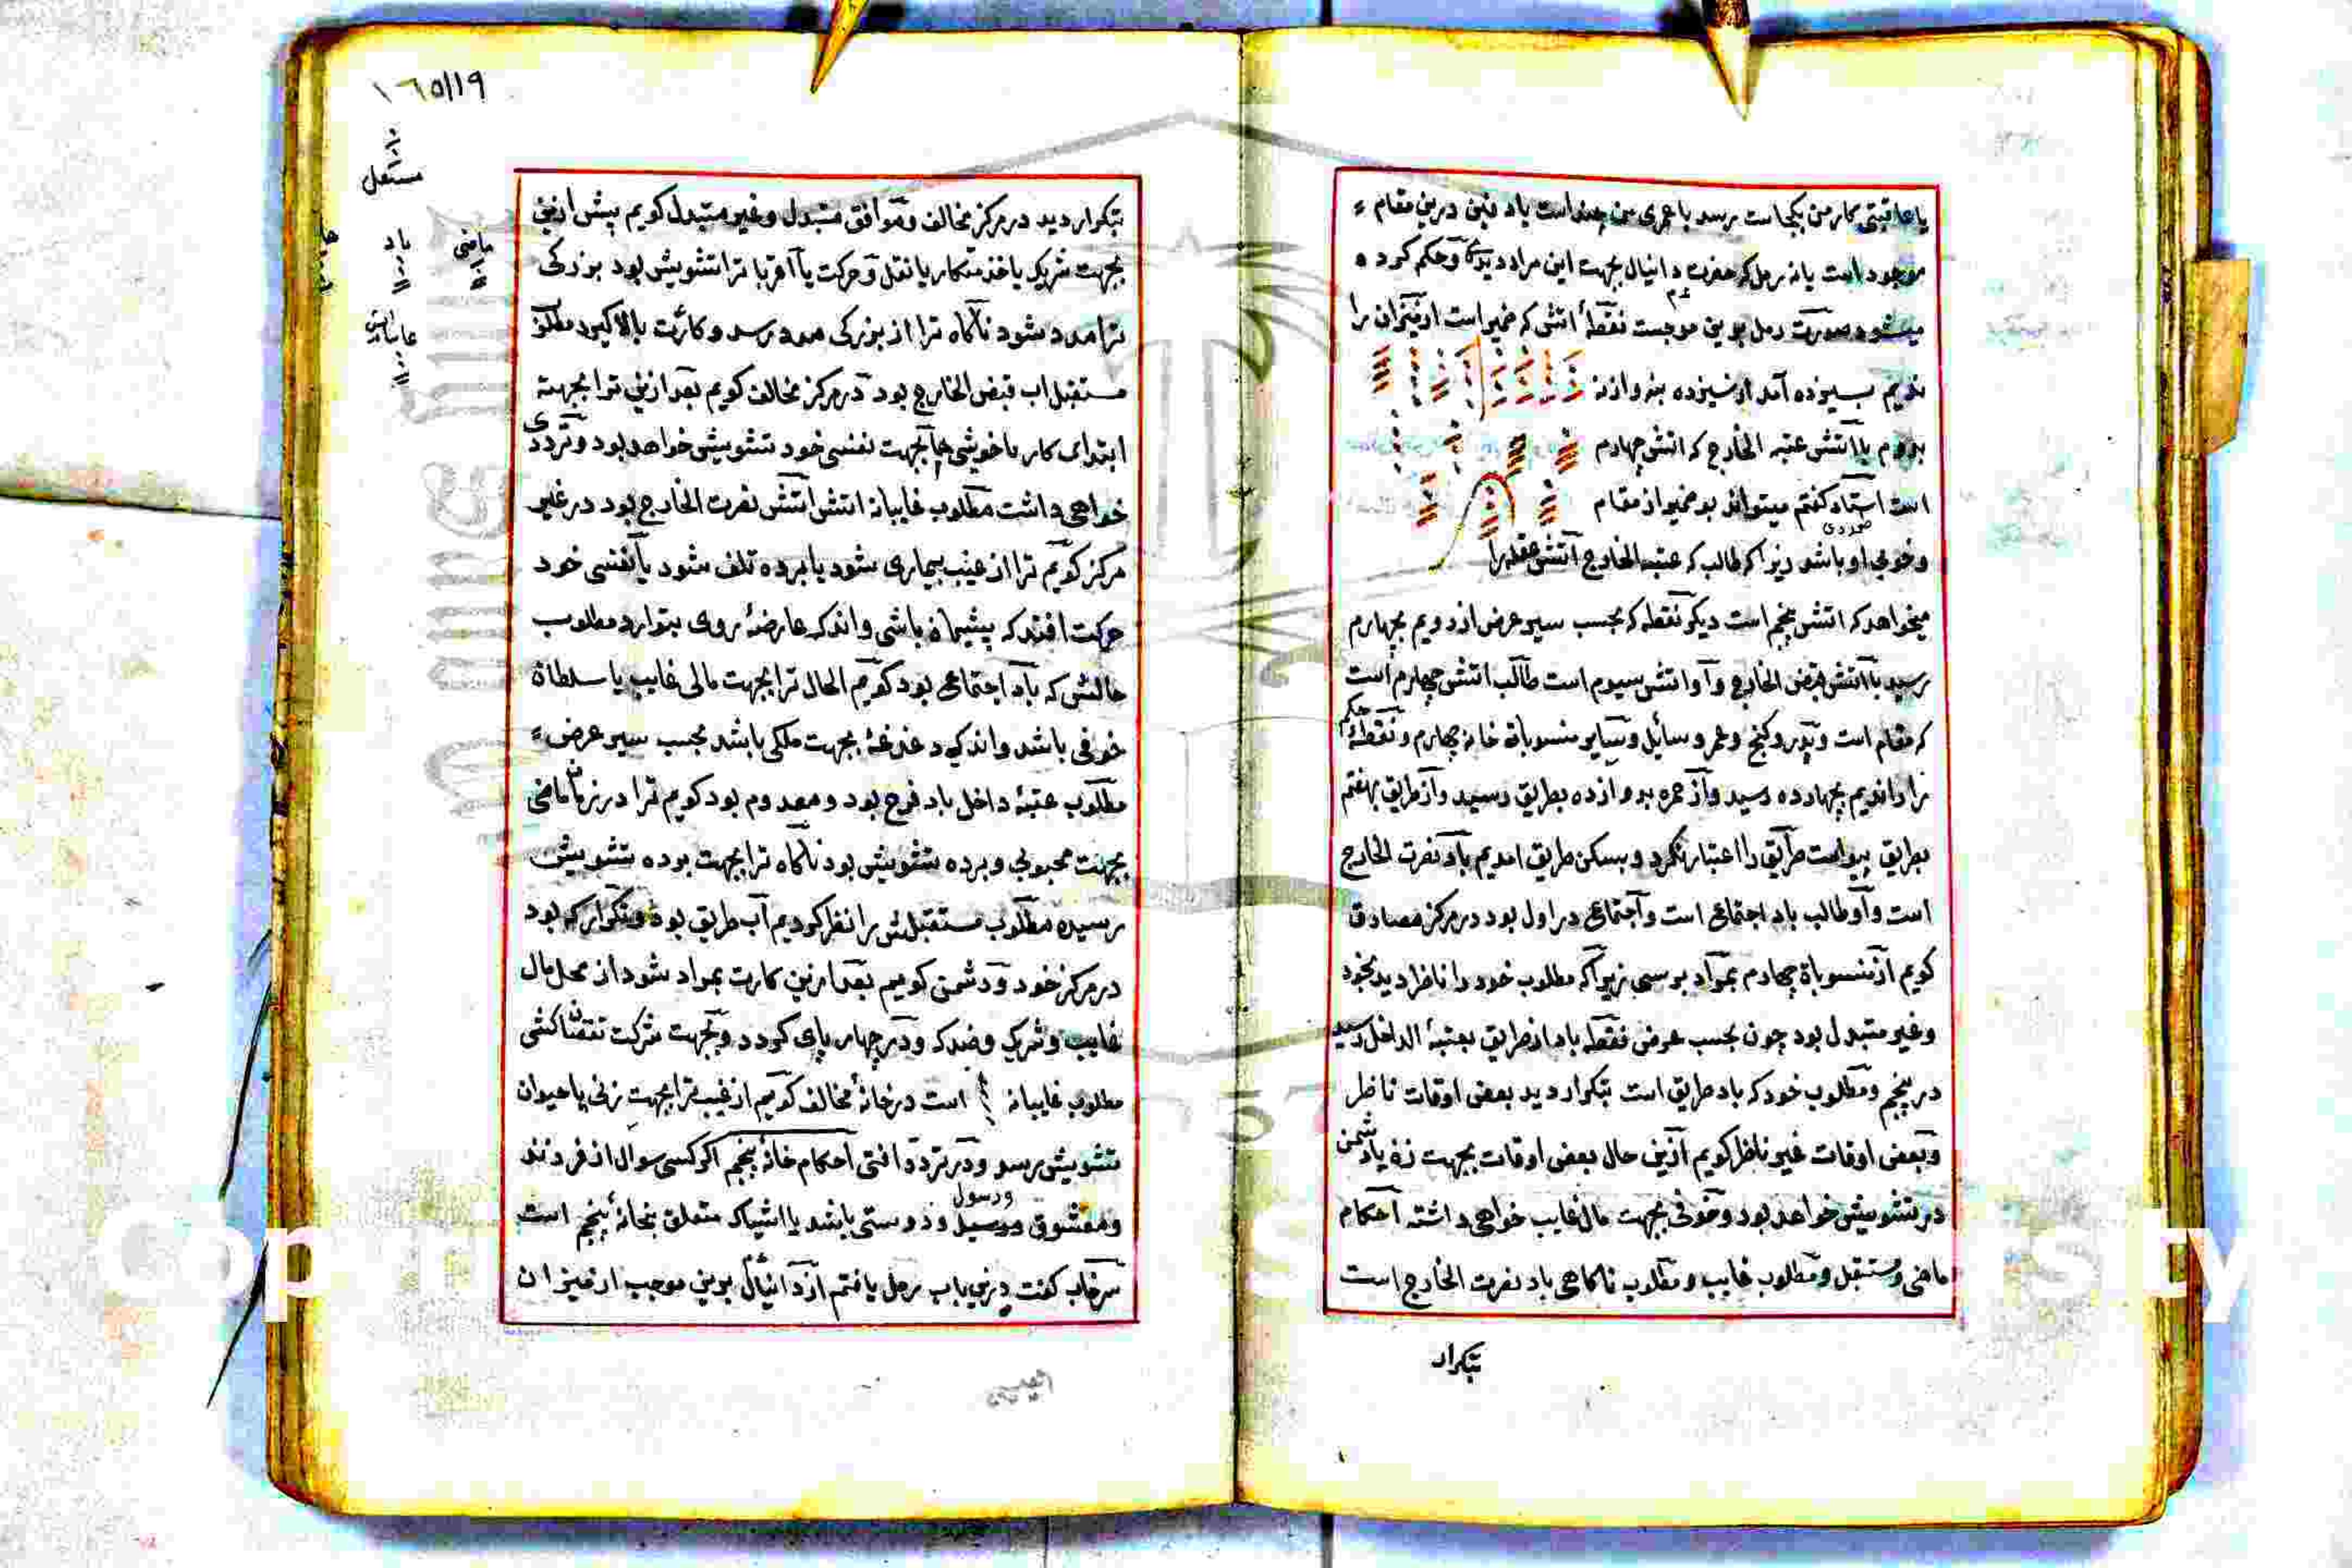 یا عاقبتی کار من بکجاست برسد یا عمری من چند است یاد فنین درین مقام
موجود است یا نه رمل که حضرت دانیال بجهت این مراد دید و حکم کرده
میشود صورت رمل برین موجبست نقطهٔ اتش که ضمیر است از میزان را
ندیم بسیزده آمد از سیزده بنه و از نه
بدوم با آتش عتبه الخارج که اتش چهارم
است استاد کفتم میتواند بو ضمیر از مقام
وخوبی او باشد زیرا که طالب که عتبه الخارج آتش عقله را
میخواهد که اتش پنجم است دیکر نقطه که بحسب سیر عرض از دویم بچهارم
رسید با آتش قبض الخارج و آو اتش سیوم است طالب اتش چهارم است
که مقام است و پدر و کنج و عمر و سایل و سایر منسوباة خانه چهارم و نقطهٔ حکم
را راندیم بچهارده رسید و از حمره بدوازده بطریق رسید و از طریق بهفتم
بطریق پیواست طریق را اعتبار نکرد و بسکن طریق امدیم باد نصرت الخارج
است و او طالب باد اجتماعی است و اجتماعی در اول بود در مرکز مصادق
کویم از منسوباة چهارم بمراد برسی زیرا که مطلوب خود را ناظر دید بخود
وغیر متبدل بود چون بحسب عرض نقطه باد از طریق بعتبهٔ الداخل رسید
در پنجم ومطلوب خود که باد طریق است بتکرار دید بعضی اوقات ناظر
وبعضی اوقات غیر ناظر کویم ازین حال بعضی اوقات بجهت زن یا دشمن
در تشویش خواهد بود و خوفی بجهت مال غایب خواهی داشته احکام
ماضی ومستقبل ومطلوب غایب و مطلوب ناکاهی باد نصرت الخارج است
بتکرار
١٦٥/١٩
مستقبل
ماضی
باد
بتکرار دید در مرکز مخالف و موافق متبدل وغیر متبدل کویم پیش ازین
بجهت شریک یا خذمتکار یا نقل و حرکت یا اقربا ترا تشویش بود بزرکی
ترا مدد شود ناکاه ترا از بزرکی مدد رسد و کارت بالا کیرد مطلوب
مستقبل اب قبض الخارج بود در مرکز مخالف کویم بعد ازین ترا بجهة
ابتدای کار با خویشی یا بجهت نفسی خود تشویش خواهد بود و ترددی
خواهی داشت مطلوب غایبانه اتش اتش نصرت الخارج بود در غیر
مرکز کویم ترا از غیب بیماری شود یا برده تلف شود یا نفسی خود
حرکت افتد که پشیمان باشی و اندکه عارضهٔ روی بتو ارد مطلوب
حالش که باد اجتماعی بود کویم الحال ترا بجهت مالی غایب یا سلطان
خوفی باشد و اندکی دغدغهٔ بجهت ملکی باشد بحسب سیر عرض
مطلوب عتبهٔ داخل باد فرح بود و معدوم بود کویم ترا در زمان ماضی
بجهت محبوبی و برده تشویش بود ناکاه ترا بجهت برده تشویش
رسیده مطلوب مستقبلش را نظر کردیم آب طریق بود و تکرار که بود
در مرکز خود و دشمن کوییم بعد ازین کارت بمراد شود از محل مال
غایب و شریک و ضد که و در چهار پای کردد و بجهت شرکت نقصان کشی
مطلوب غایبانه است در خانهٔ مخالف کویم از غیب ترا بجهت زنی یا حیوان
تشویش رسد و در تردد افتی احکام خانهٔ پنجم اکر کسی سوال از فرزند
ومعشوق ورسول ودوستی باشد یا اشیاکه متعلق بخانهٔ پنجم است
سرخاب کفت درین باب رمل یافتم از دانیال برین موجب از میزان